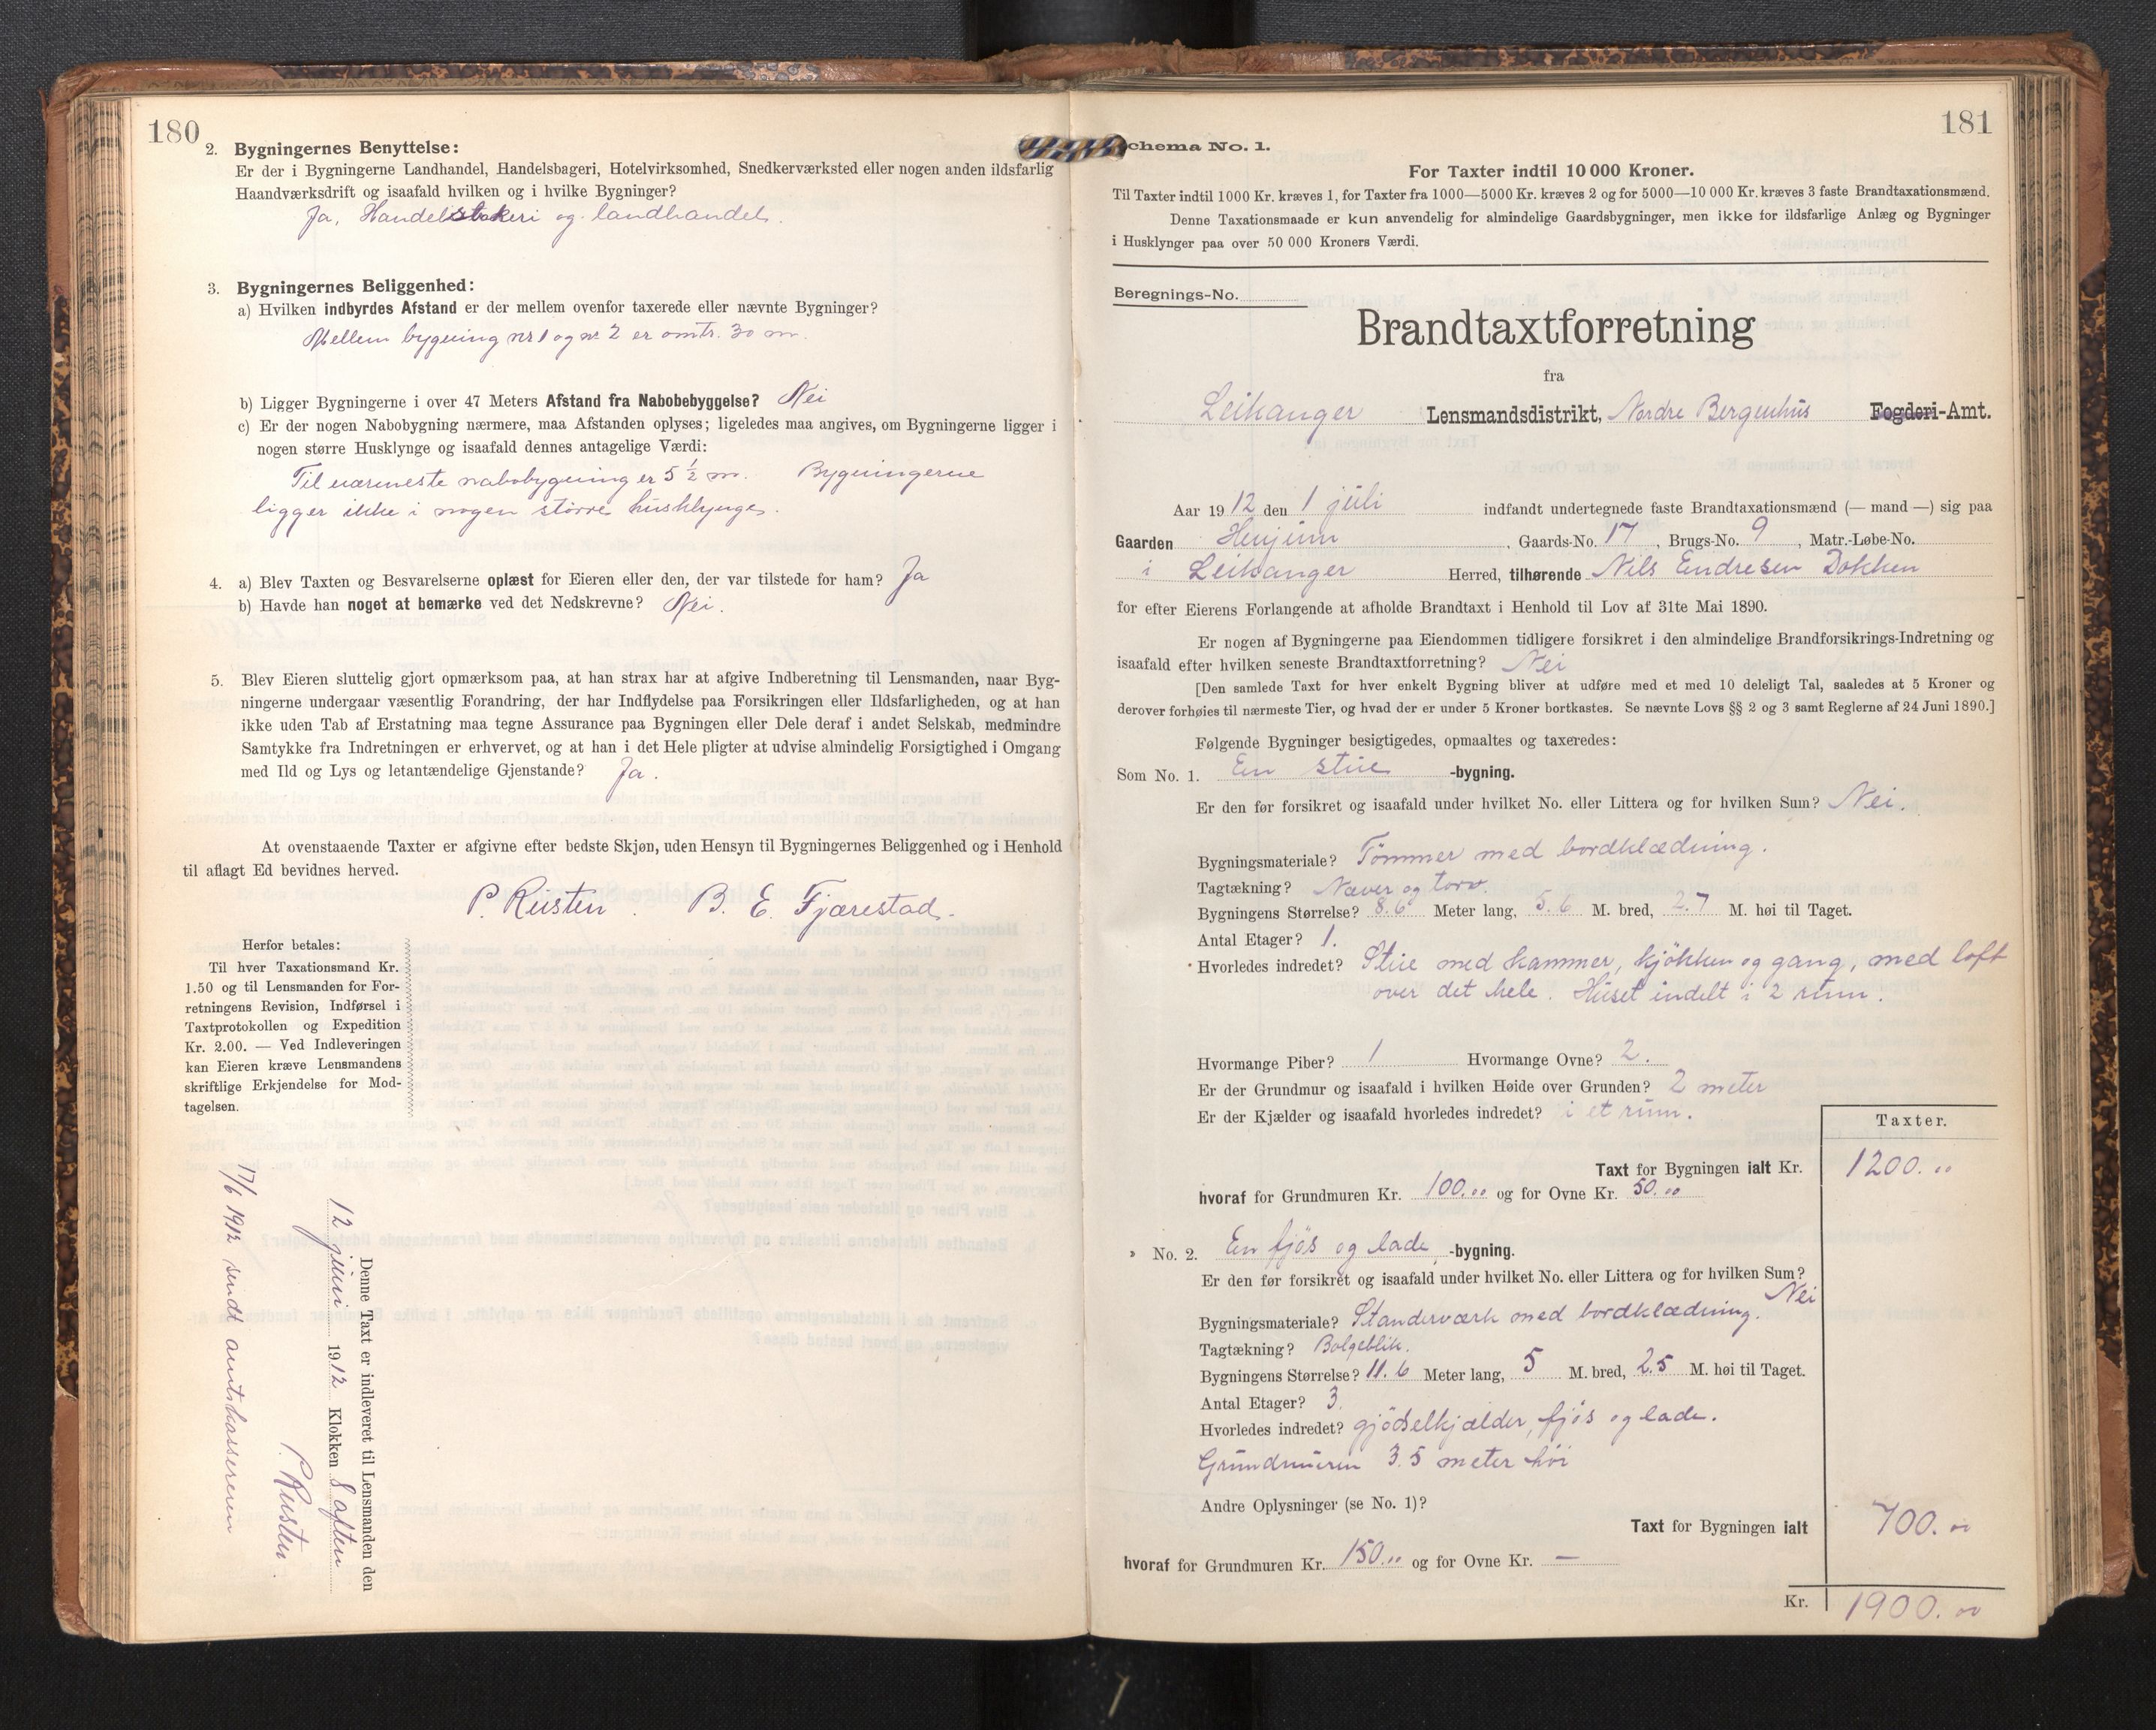 180
2. Bygningernes Benyttelse:
Er der i Bygningerne Landhandel, Handelsbageri, Hotelvirksomhed, Snedkerværksted eller nogen anden ildsfarlig
Haandværksdrift og isaafald hvilken og i hvilke Bygninger?
Ja, Handelsbakeri og landhandel.
3. Bygningernes Beliggenhed:
a) Hvilken indbyrdes Afstand er der mellem ovenfor taxerede eller nævnte Bygninger?
Mellem bygning nr 1 og nr 2 er omtr. 30 m.
b) Ligger Bygningerne i over 47 Meters Afstand fra Nabobebyggelse? Nei
c) Er der nogen Nabobygning nærmere, maa Afstanden oplyses; ligeledes maa angives, om Bygningerne ligger i
nogen større Husklynge og isaafald dennes antagelige Værdi:
Til nærmeste nabobygning er 5 1/2 m. Bygningerne
ligger ikke i nogen större husklynge.
4. a) Blev Taxten og Besvarelserne oplæst for Eieren eller den, der var tilstede for ham? Ja
b) Havde han noget at bemærke ved det Nedskrevne? Nei.
5. Blev Eieren sluttelig gjort opmærksom paa, at han strax har at afgive Indberetning til Lensmanden, naar Byg-
ningerne undergaar væsentlig Forandring, der har Indflydelse paa Forsikringen eller Ildsfarligheden, og at han
ikke uden Tab af Erstatning maa tegne Assurance paa Bygningen eller Dele deraf i andet Selskab, medmindre
Samtykke fra Indretningen er erhvervet, og at han i det Hele pligter at udvise almindelig Forsigtighed i Omgang
med Ild og Lys og letantændelige Gjenstande? Ja.
At ovenstaaende Taxter er afgivne efter bedste Skjøn, uden Hensyn til Bygningernes Beliggenhed og i Henhold
til aflagt Ed bevidnes herved.
P. Rusten. B. E. Fjærestad.
Herfor betales:
Til hver Taxationsmand Kr.
1.50 og til Lensmanden for For-
retningens Revision, Indførsel i
Taxtprotokollen og Expedition
Kr. 2.00. — Ved Indleveringen
kan Eieren kræve Lensmandens
skriftlige Erkjendelse for Mod-
tagelsen.
Denne Taxt er indleveret til Lensmanden den
12 juni 1912 Klokken 8 aften
P. Rusten.
17/6 1912 sendt amtskassereren
181
chema No. 1.
For Taxter indtil 10 000 Kroner.
Til Taxter indtil 1000 Kr. kræves 1, for Taxter fra 1000—5000 Kr. kræves 2 og for 5000—10 000 Kr. kræves 3 faste Brandtaxationsmænd.
Denne Taxationsmaade er kun anvendelig for almindelige Gaardsbygninger, men ikke for ildsfarlige Anlæg og Bygninger
i Husklynger paa over 50 000 Kroners Værdi.
Beregnings-No.
Brandtaxtforretning
fra
Leikanger Lensmandsdistrikt, Nordre Bergenhus Fogderi-Amt.
Aar 1912 den 1 juli indfandt undertegnede faste Brandtaxationsmænd (— mand —) sig paa
Gaarden Henjum, Gaards-No. 17, Brugs-No. 9, Matr.-Løbe-No.
i Leikanger Herred, tilhørende Nils Endresen Dokken
for efter Eierens Forlangende at afholde Brandtaxt i Henhold til Lov af 31te Mai 1890.
Er nogen af Bygningerne paa Eiendommen tidligere forsikret i den almindelige Brandforsikrings-Indretning og
isaafald efter hvilken seneste Brandtaxtforretning? Nei
[Den samlede Taxt for hver enkelt Bygning bliver at udføre med et med 10 deleligt Tal, saaledes at 5 Kroner og
derover forhøies til nærmeste Tier, og hvad der er under 5 Kroner bortkastes. Se nævnte Lovs §§ 2 og 3 samt Reglerne af 24 Juni 1890.]
Følgende Bygninger besigtigedes, opmaaltes og taxeredes:
Som No. 1. En stue -bygning.
Er den før forsikret og isaafald under hvilket No. eller Littera og for hvilken Sum? Nei.
Bygningsmateriale? Tömmer med bordklædning.
Tagtækning? Næver og torv.
Bygningens Størrelse? 8.6 Meter lang, 5.6 M. bred, 2.7 M. høi til Taget.
Antal Etager? 1.
Hvorledes indredet? Stue med kammer, kjökken og gang, med loft
over det hele. Huset indelt i 2 rum.
Hvormange Piber? 1 Hvormange Ovne? 2.
Er der Grundmur og isaafald i hvilken Høide over Grunden? 2 meter
Er der Kjælder og isaafald hvorledes indredet? i et rum.
Taxter.
Taxt for Bygningen ialt Kr. 1200.00
hvoraf for Grundmuren Kr. 100.00 og for Ovne Kr. 50.00
No. 2. En fjös og lade -bygning.
Er den før forsikret og isaafald under hvilket No. eller Littera og for hvilken Sum?
Nei
Bygningsmateriale? Standerværk med bordklædning.
Tagtækning? Bølgeblik.
Bygningens Størrelse? 11.6 Meter lang, 5 M. bred, 2.5 M. høi til Taget.
Antal Etager? 3.
Hvorledes indredet? gjödselkjælder, fjös og lade.
Grundmuren 3.5 meter höi
Andre Oplysninger (se No. 1)?
Taxt for Bygningen ialt 700.00
hvoraf for Grundmuren Kr. 150.00 og for Ovne Kr. —
Kr. 1900.00